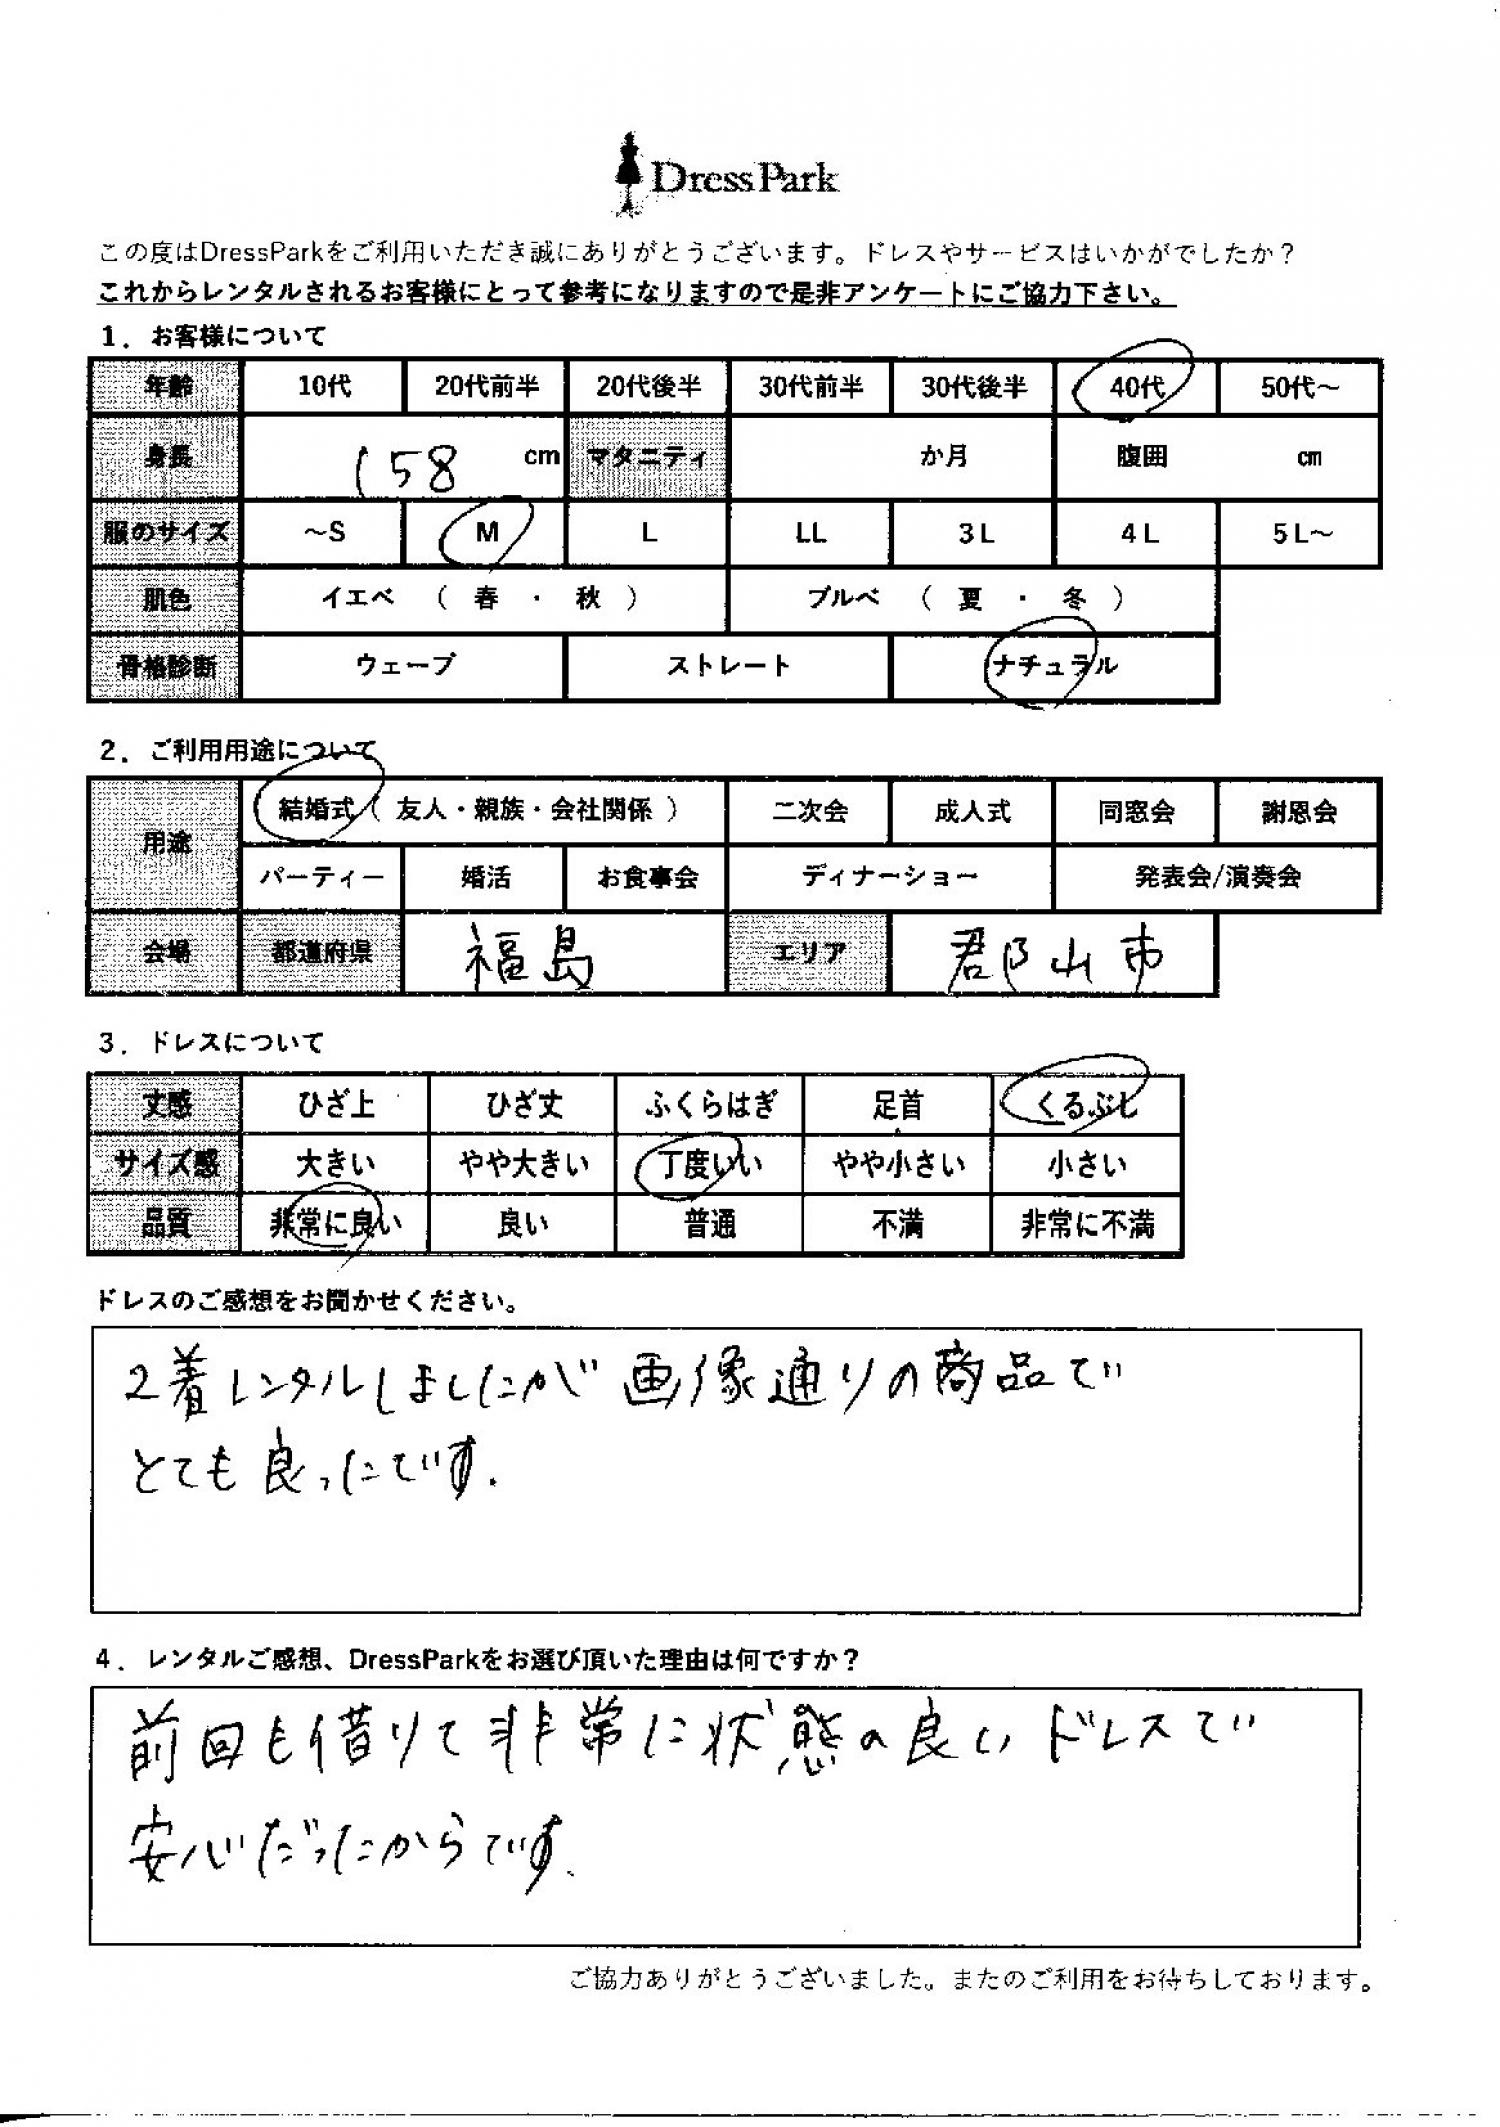 DressPark
この度はDressParkをご利用いただき誠にありがとうございます。ドレスやサービスはいかがでしたか？
これからレンタルされるお客様にとって参考になりますので是非アンケートにご協力下さい。
1．お客様について
年齢 10代 20代前半 20代後半 30代前半 30代後半 40代 50代～
身長 158 cm マタニティ か月 腹囲 cm
服のサイズ ～S M L LL 3L 4L 5L～
肌色 イエベ （ 春 ・ 秋 ） ブルベ （ 夏 ・ 冬 ）
骨格診断 ウェーブ ストレート ナチュラル
2．ご利用用途について
用途 結婚式（ 友人・親族・会社関係 ） 二次会 成人式 同窓会 謝恩会
パーティー 婚活 お食事会 ディナーショー 発表会/演奏会
会場 都道府県 福島 エリア 郡山市
3．ドレスについて
丈感 ひざ上 ひざ丈 ふくらはぎ 足首 くるぶし
サイズ感 大きい やや大きい 丁度いい やや小さい 小さい
品質 非常に良い 良い 普通 不満 非常に不満
ドレスのご感想をお聞かせください。
2着レンタルしましたが画像通りの商品で
とても良ったです.
4．レンタルご感想、DressParkをお選び頂いた理由は何ですか？
前回も借りて非常に状態の良いドレスで
安心だったからです.
ご協力ありがとうございました。またのご利用をお待ちしております。